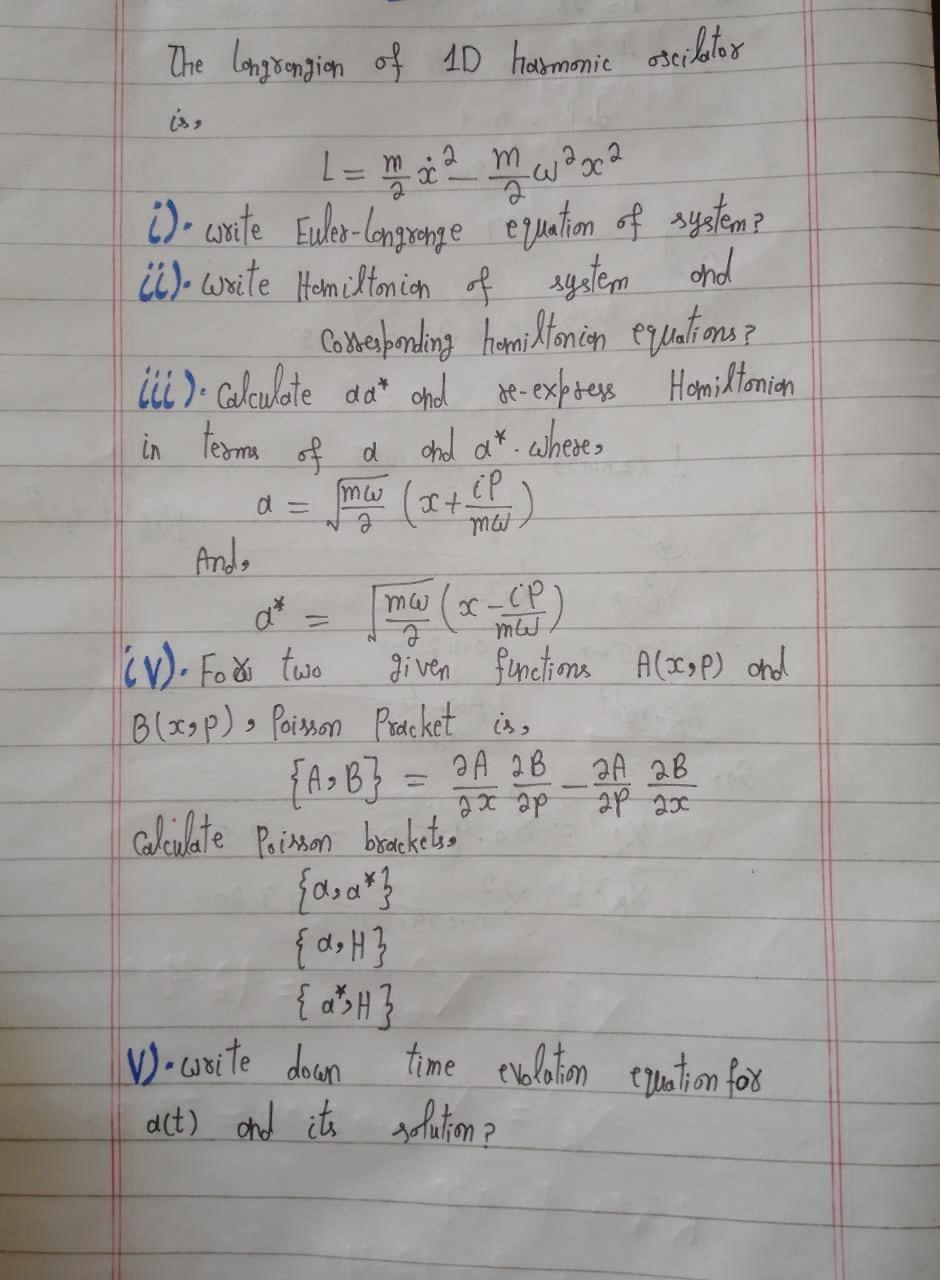 The Longrongion of 1D harmonic oscilator
is,
L = m/2 ẋ² - m/2 ω²x²
i). write Euler-Longronge equation of system?
ii). write Homiltonion of system ond
Corresponding homiltonion equations?
iii). Calculate αα* ond re-express Homiltonion
in terms of α ond α*. where,
α = √(mω/2) (x + iP/mω)
And,
α* = √(mω/2) (x - iP/mω)
iv). For two given functions A(x,p) ond
B(x,p), Poisson Pracket is,
{A,B} = ∂A/∂x ∂B/∂p - ∂A/∂p ∂B/∂x
Calculate Poisson brackets,
{α,α*}
{α,H}
{α*,H}
V). write down time evolotion equation for
α(t) ond its solution?